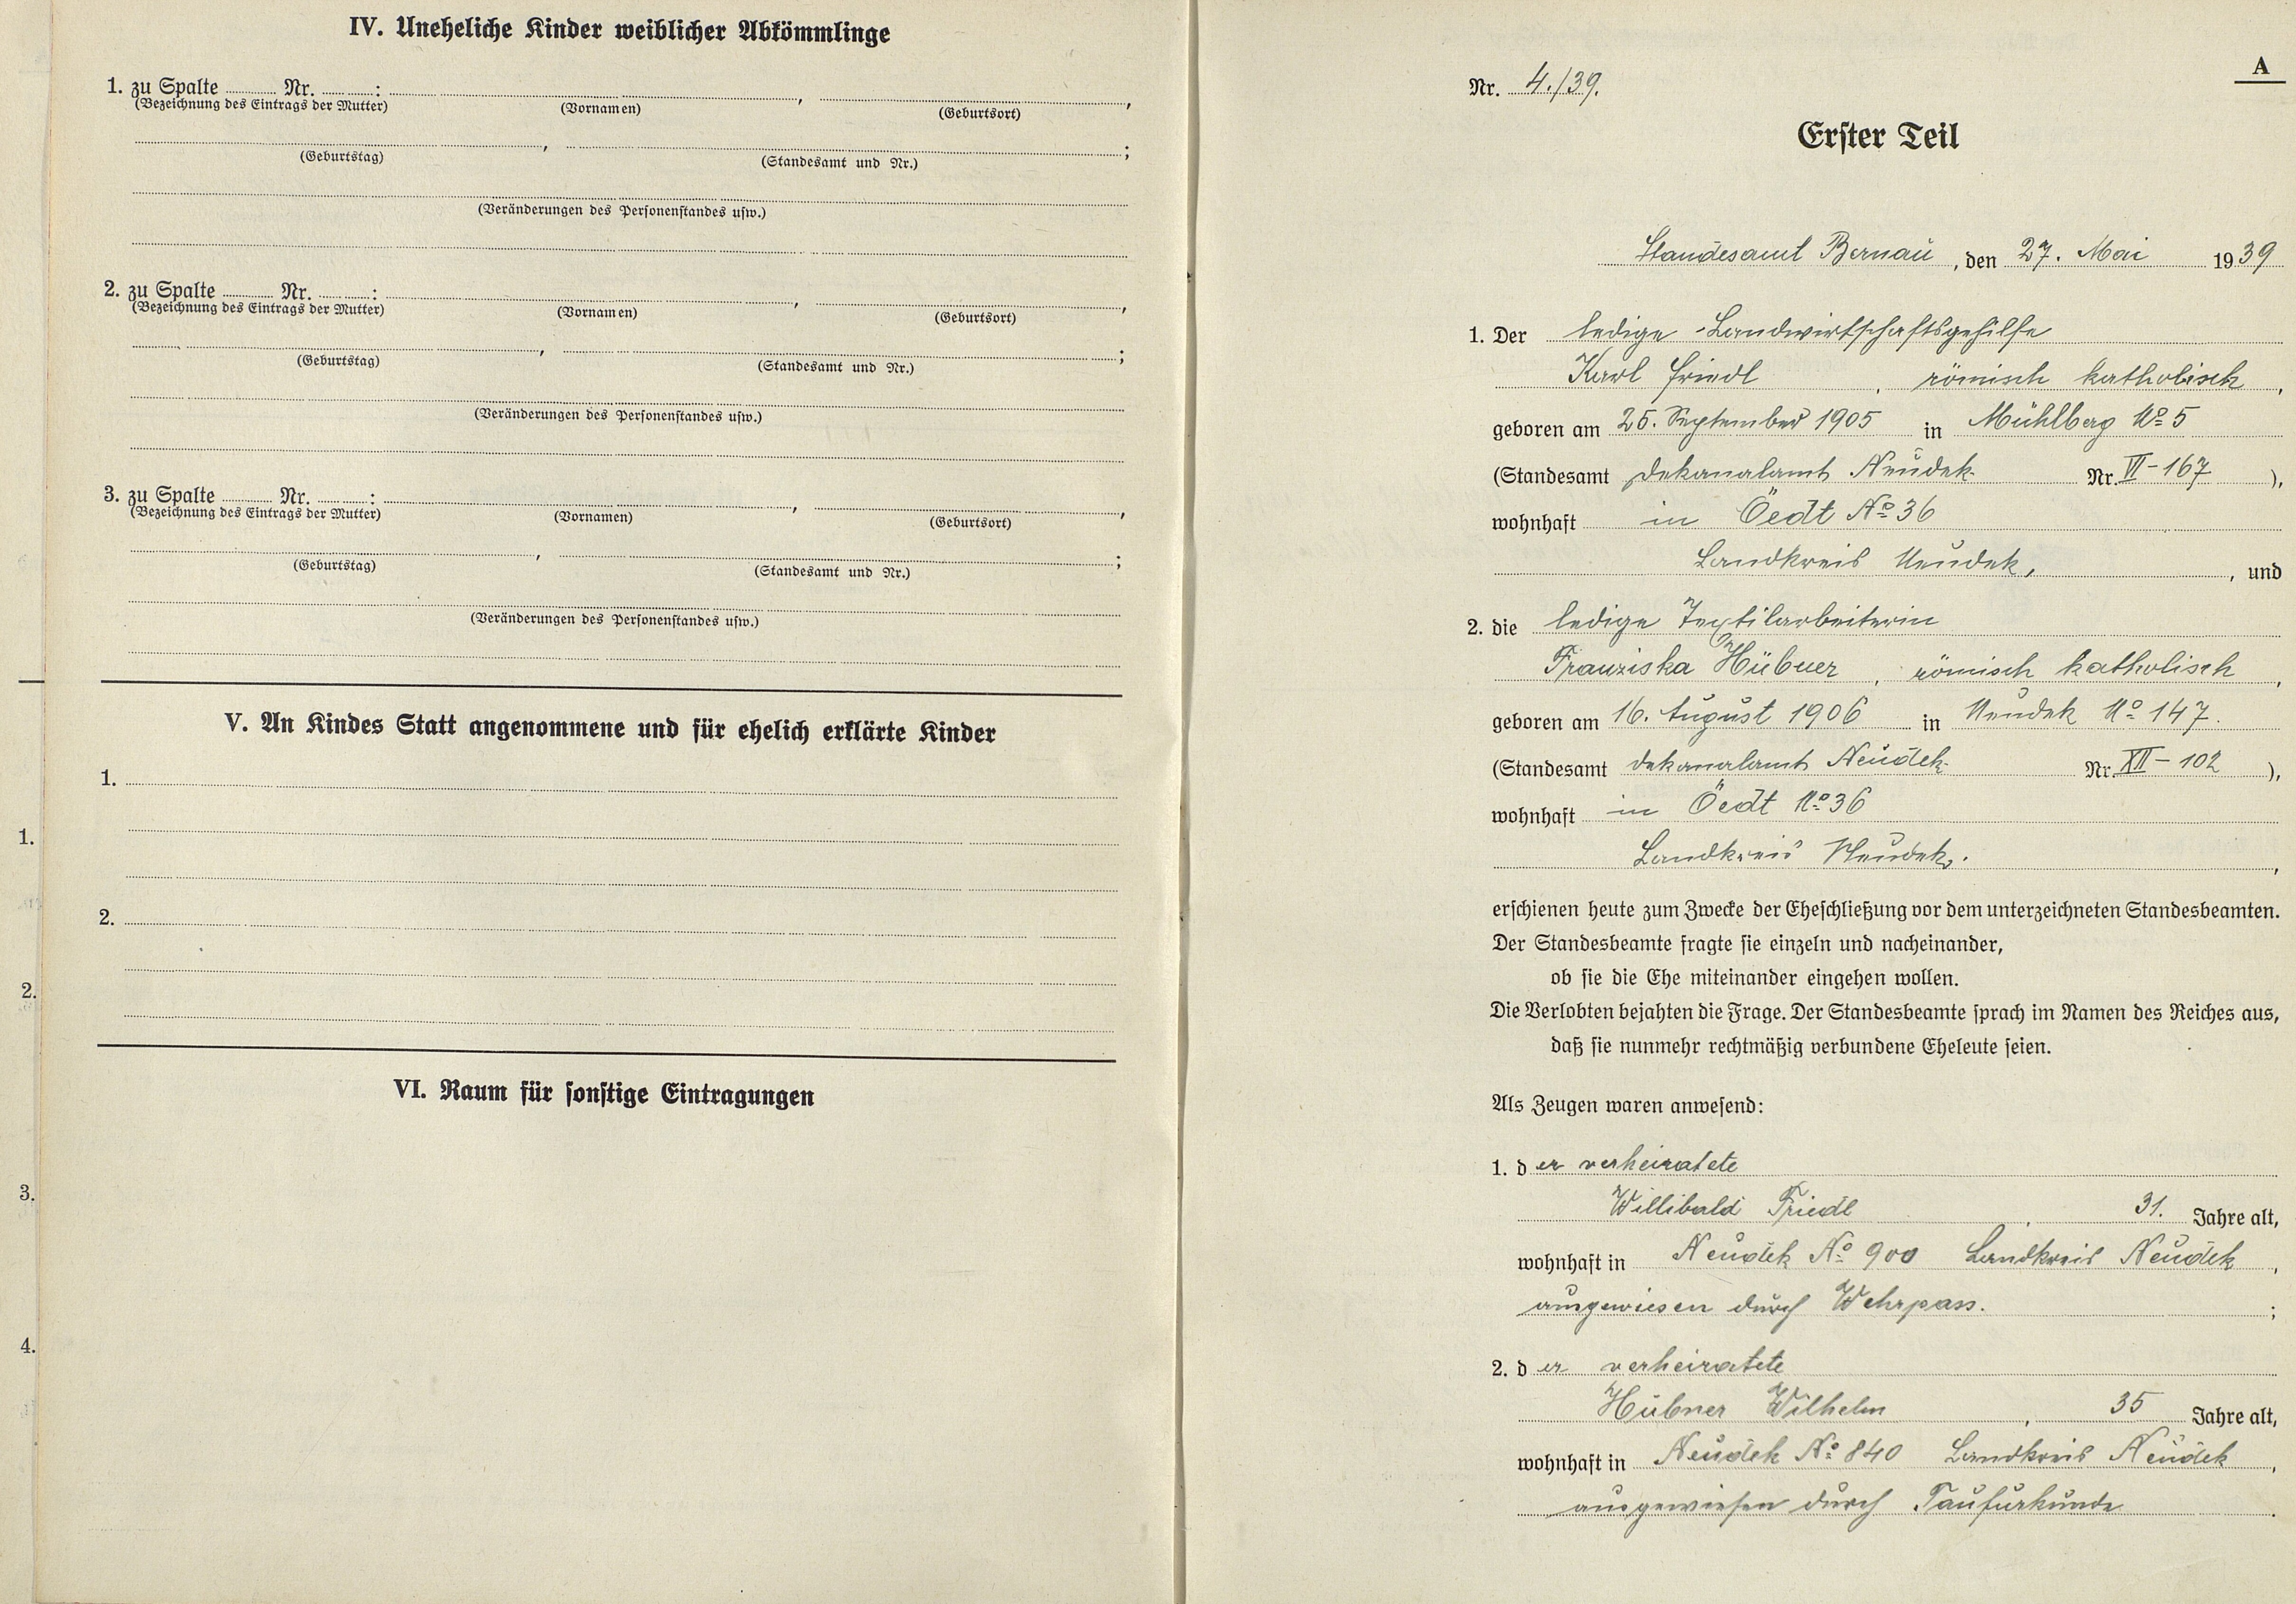 IV. Uneheliche Kinder weiblicher Abkömmlinge
1. zu Spalte ........ Nr. ........:
(Bezeichnung des Eintrags der Mutter) (Vornamen) , (Geburtsort) ,
(Geburtstag) , (Standesamt und Nr.) ;
(Veränderungen des Personenstandes usw.)
2. zu Spalte ........ Nr. ........:
(Bezeichnung des Eintrags der Mutter) (Vornamen) , (Geburtsort) ,
(Geburtstag) , (Standesamt und Nr.) ;
(Veränderungen des Personenstandes usw.)
3. zu Spalte ........ Nr. ........:
(Bezeichnung des Eintrags der Mutter) (Vornamen) , (Geburtsort) ,
(Geburtstag) , (Standesamt und Nr.) ;
(Veränderungen des Personenstandes usw.)
V. An Kindes Statt angenommene und für ehelich erklärte Kinder
1.
2.
VI. Raum für sonstige Eintragungen
1.
2.
3.
4.
A
Nr. 4./39.
Erster Teil
Standesamt Bernau, den 27. Mai 1939
1. Der ledige Landwirtschaftsgehilfe
Karl Friedl, römisch katholisch,
geboren am 25. September 1905 in Mühlberg No 5
(Standesamt Dekanalamt Neudek Nr. VI-167),
wohnhaft in Öedt No 36
Landkreis Neudek, , und
2. die ledige Textilarbeiterin
Franziska Hübner, römisch katholisch,
geboren am 16. August 1906 in Neudek No 147.
(Standesamt Dekanalamt Neudek Nr. XII-102),
wohnhaft in Öedt No 36
Landkreis Neudek. ,
erschienen heute zum Zwecke der Eheschließung vor dem unterzeichneten Standesbeamten.
Der Standesbeamte fragte sie einzeln und nacheinander,
ob sie die Ehe miteinander eingehen wollen.
Die Verlobten bejahten die Frage. Der Standesbeamte sprach im Namen des Reiches aus,
daß sie nunmehr rechtmäßig verbundene Eheleute seien.
Als Zeugen waren anwesend:
1. der verheiratete
Willibald Friedl, 31. Jahre alt,
wohnhaft in Neudek No 900 Landkreis Neudek,
ausgewiesen durch Wehrpass. ;
2. der verheiratete
Hübner Wilhelm, 35 Jahre alt,
wohnhaft in Neudek No 840 Landkreis Neudek,
ausgewiesen durch Taufurkunde.